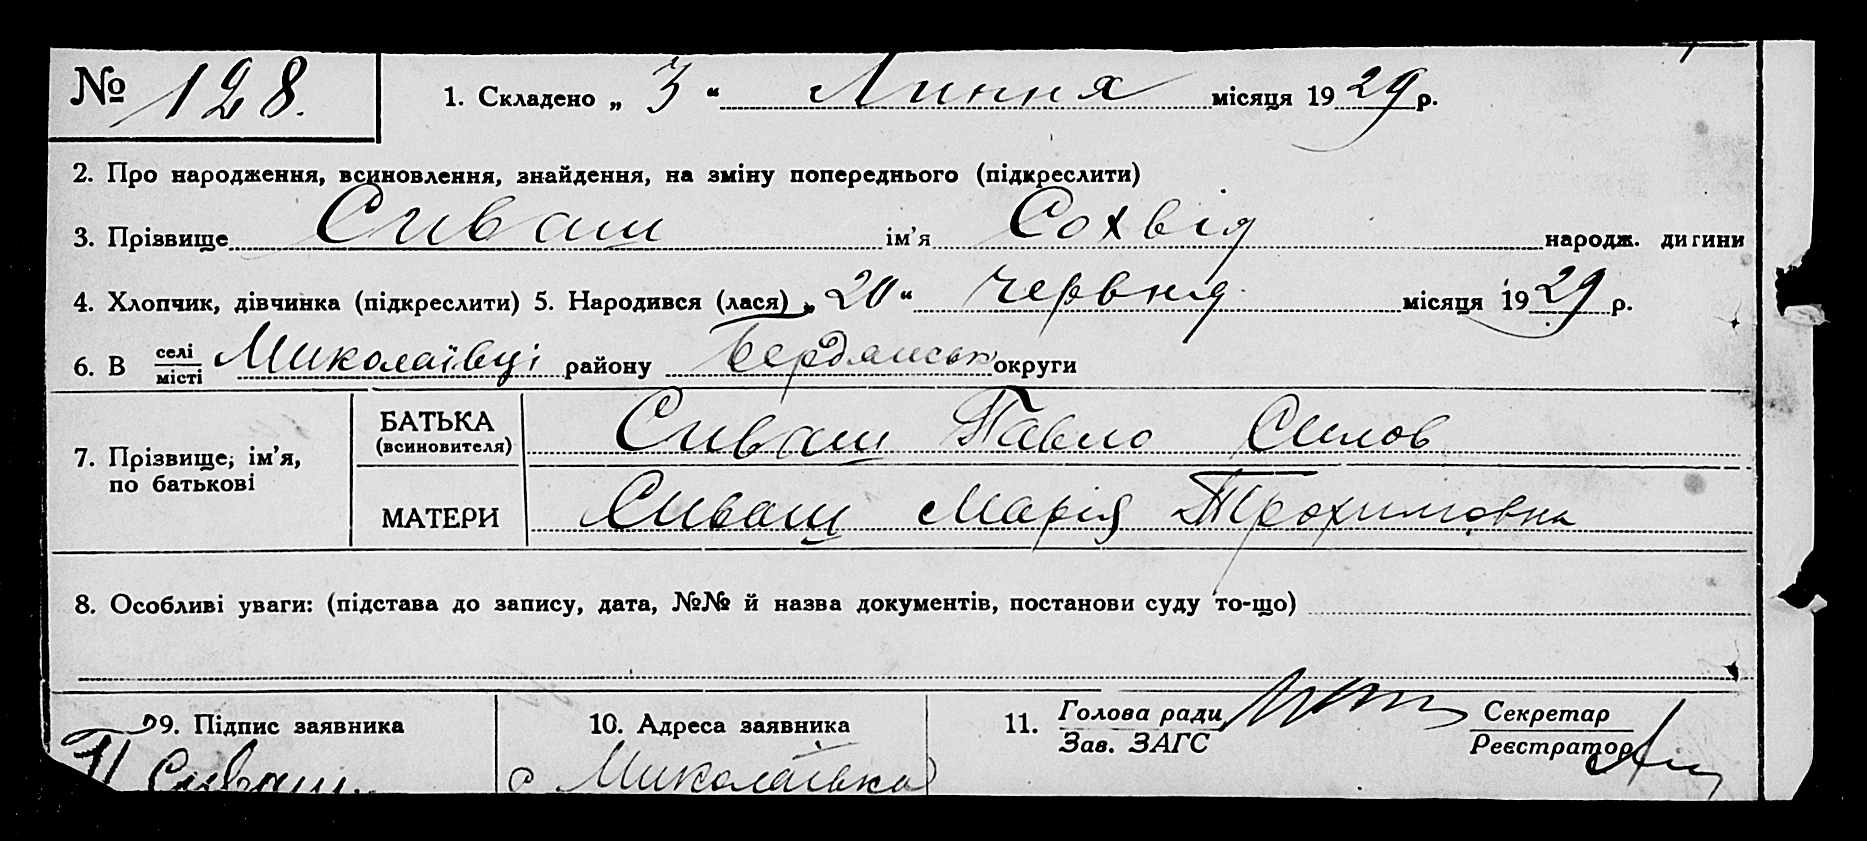 № 128. 1. Складено „ 3 “ Липня місяця 1929 р.
2. Про народження, всиновлення, знайдення, на зміну попереднього (підкреслити)
3. Прізвище Сиваш ім’я Сохвія народж. дитини
4. Хлопчик, дівчинка (підкреслити) 5. Народився (лася) „ 20 “ червня місяця 1929 р.
6. В селі
місті Миколаївці району Бердянськ округи
7. Прізвище, ім’я,
по батькові
БАТЬКА
(всиновителя) Сиваш Павло Силов
МАТЕРИ Сиваш Марія Трохимовна
8. Особливі уваги: (підстава до запису, дата, №№ й назва документів, постанови суду то-що)
9. Підпис заявника
П Сиваш
10. Адреса заявника
с Миколаївка
11. Голова ради
Зав. ЗАГС
Секретар
Реєстратор